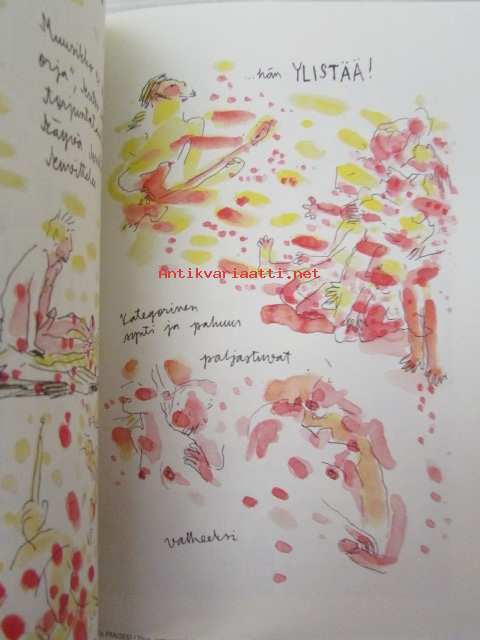 Muusikko
orja",
Käyvä
...hän YLISTÄÄ!
Antikvariaatti.net
Kategorinen
synti ja pahuus
paljastuvat
valheeksi